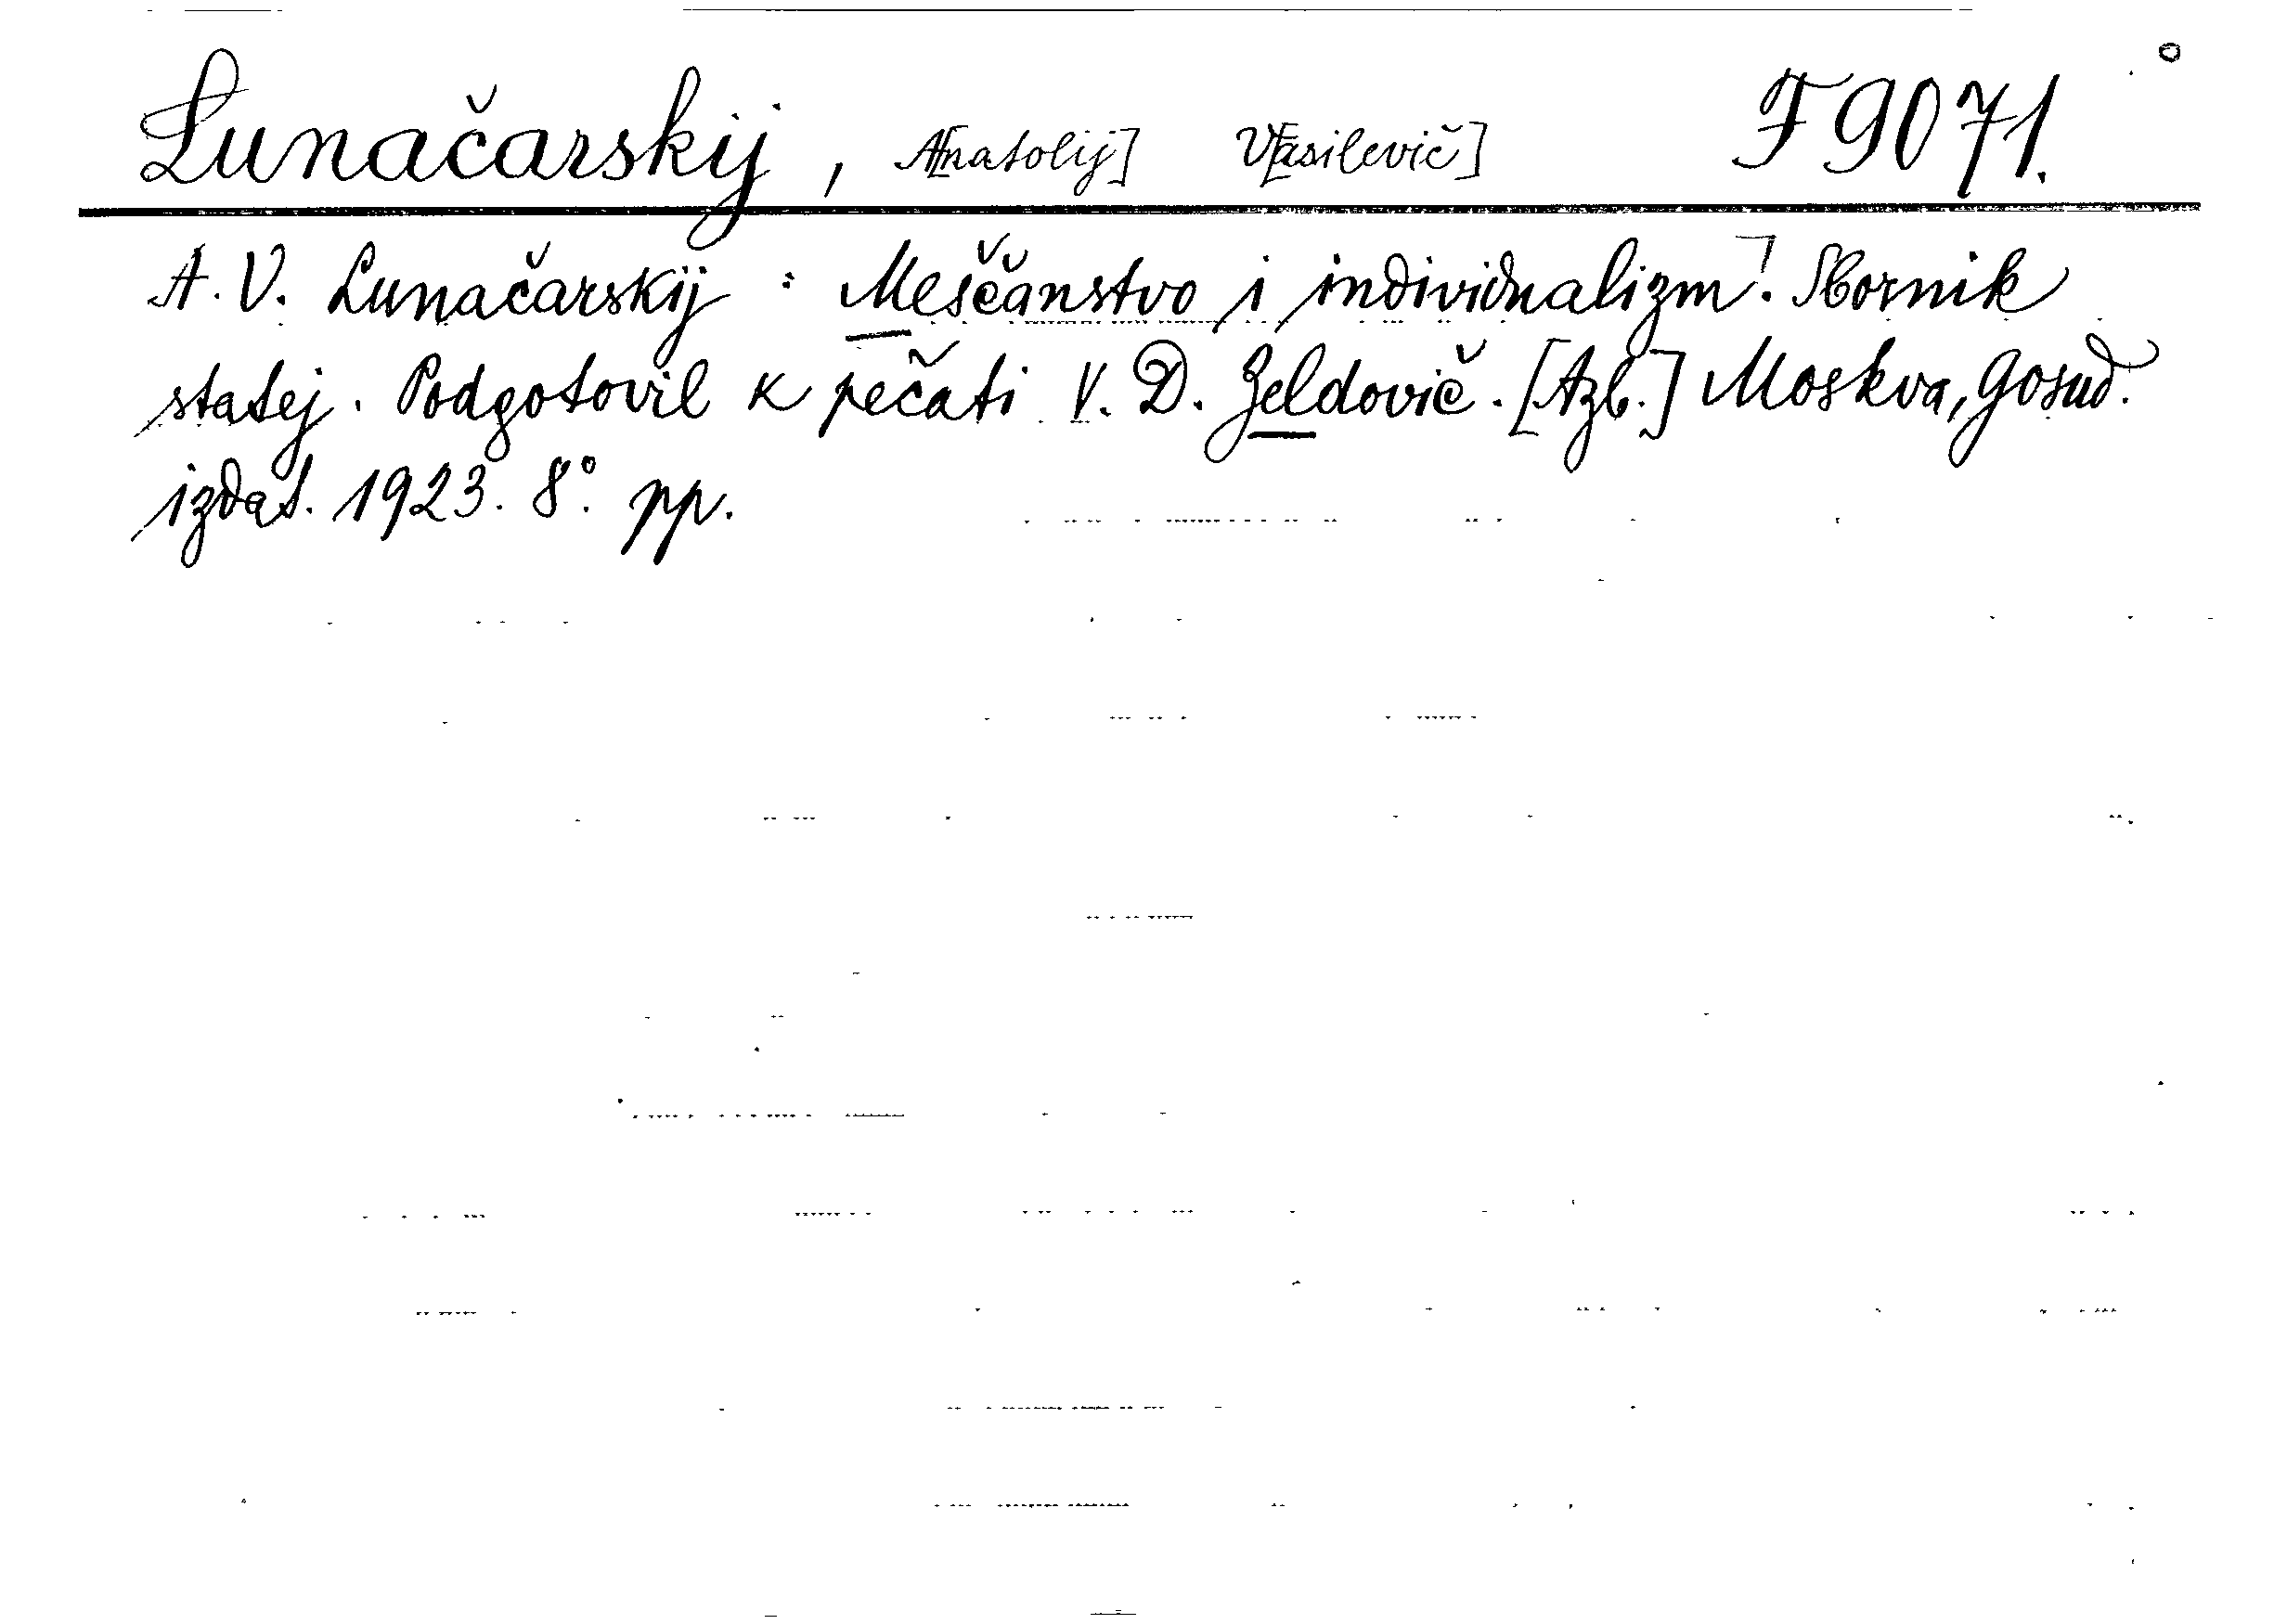 Lunačarskij, A[natolij] V[asilevič] F 9071.
A. V. Lunačarskij : Meščanstvo i individualizm. Sbornik
statej. Podgotovil k pečati V. D. Zeldovič. [Azb.] Moskva, Gosud.
izdat. 1923. 8° pp.